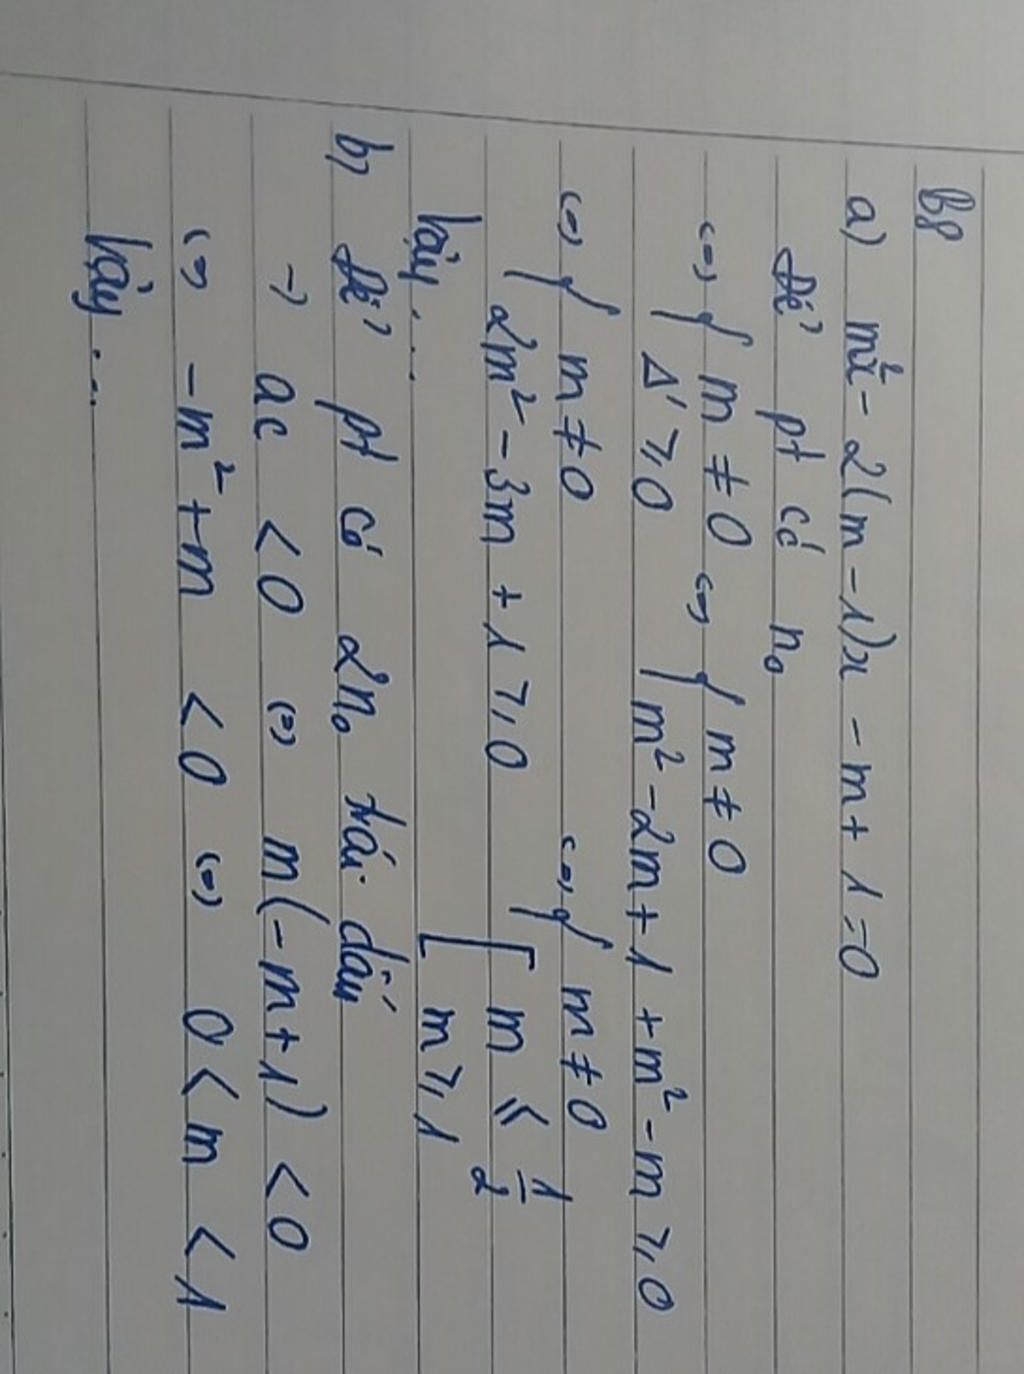 B8
a) mx² - 2(m - 1)x - m + 1 = 0
Để pt có n₀
<=> { m ≠ 0 <=> { m ≠ 0
Δ' ≥ 0 m² - 2m + 1 + m² - m ≥ 0
<=> { m ≠ 0 <=> { m ≠ 0
2m² - 3m + 1 ≥ 0 [ m ≤ 1/2
Vậy... m ≥ 1
b) Để pt có 2n₀ trái dấu
→ ac < 0 <=> m(-m+1) < 0
<=> -m² + m < 0 <=> 0 < m < 1
Vậy...